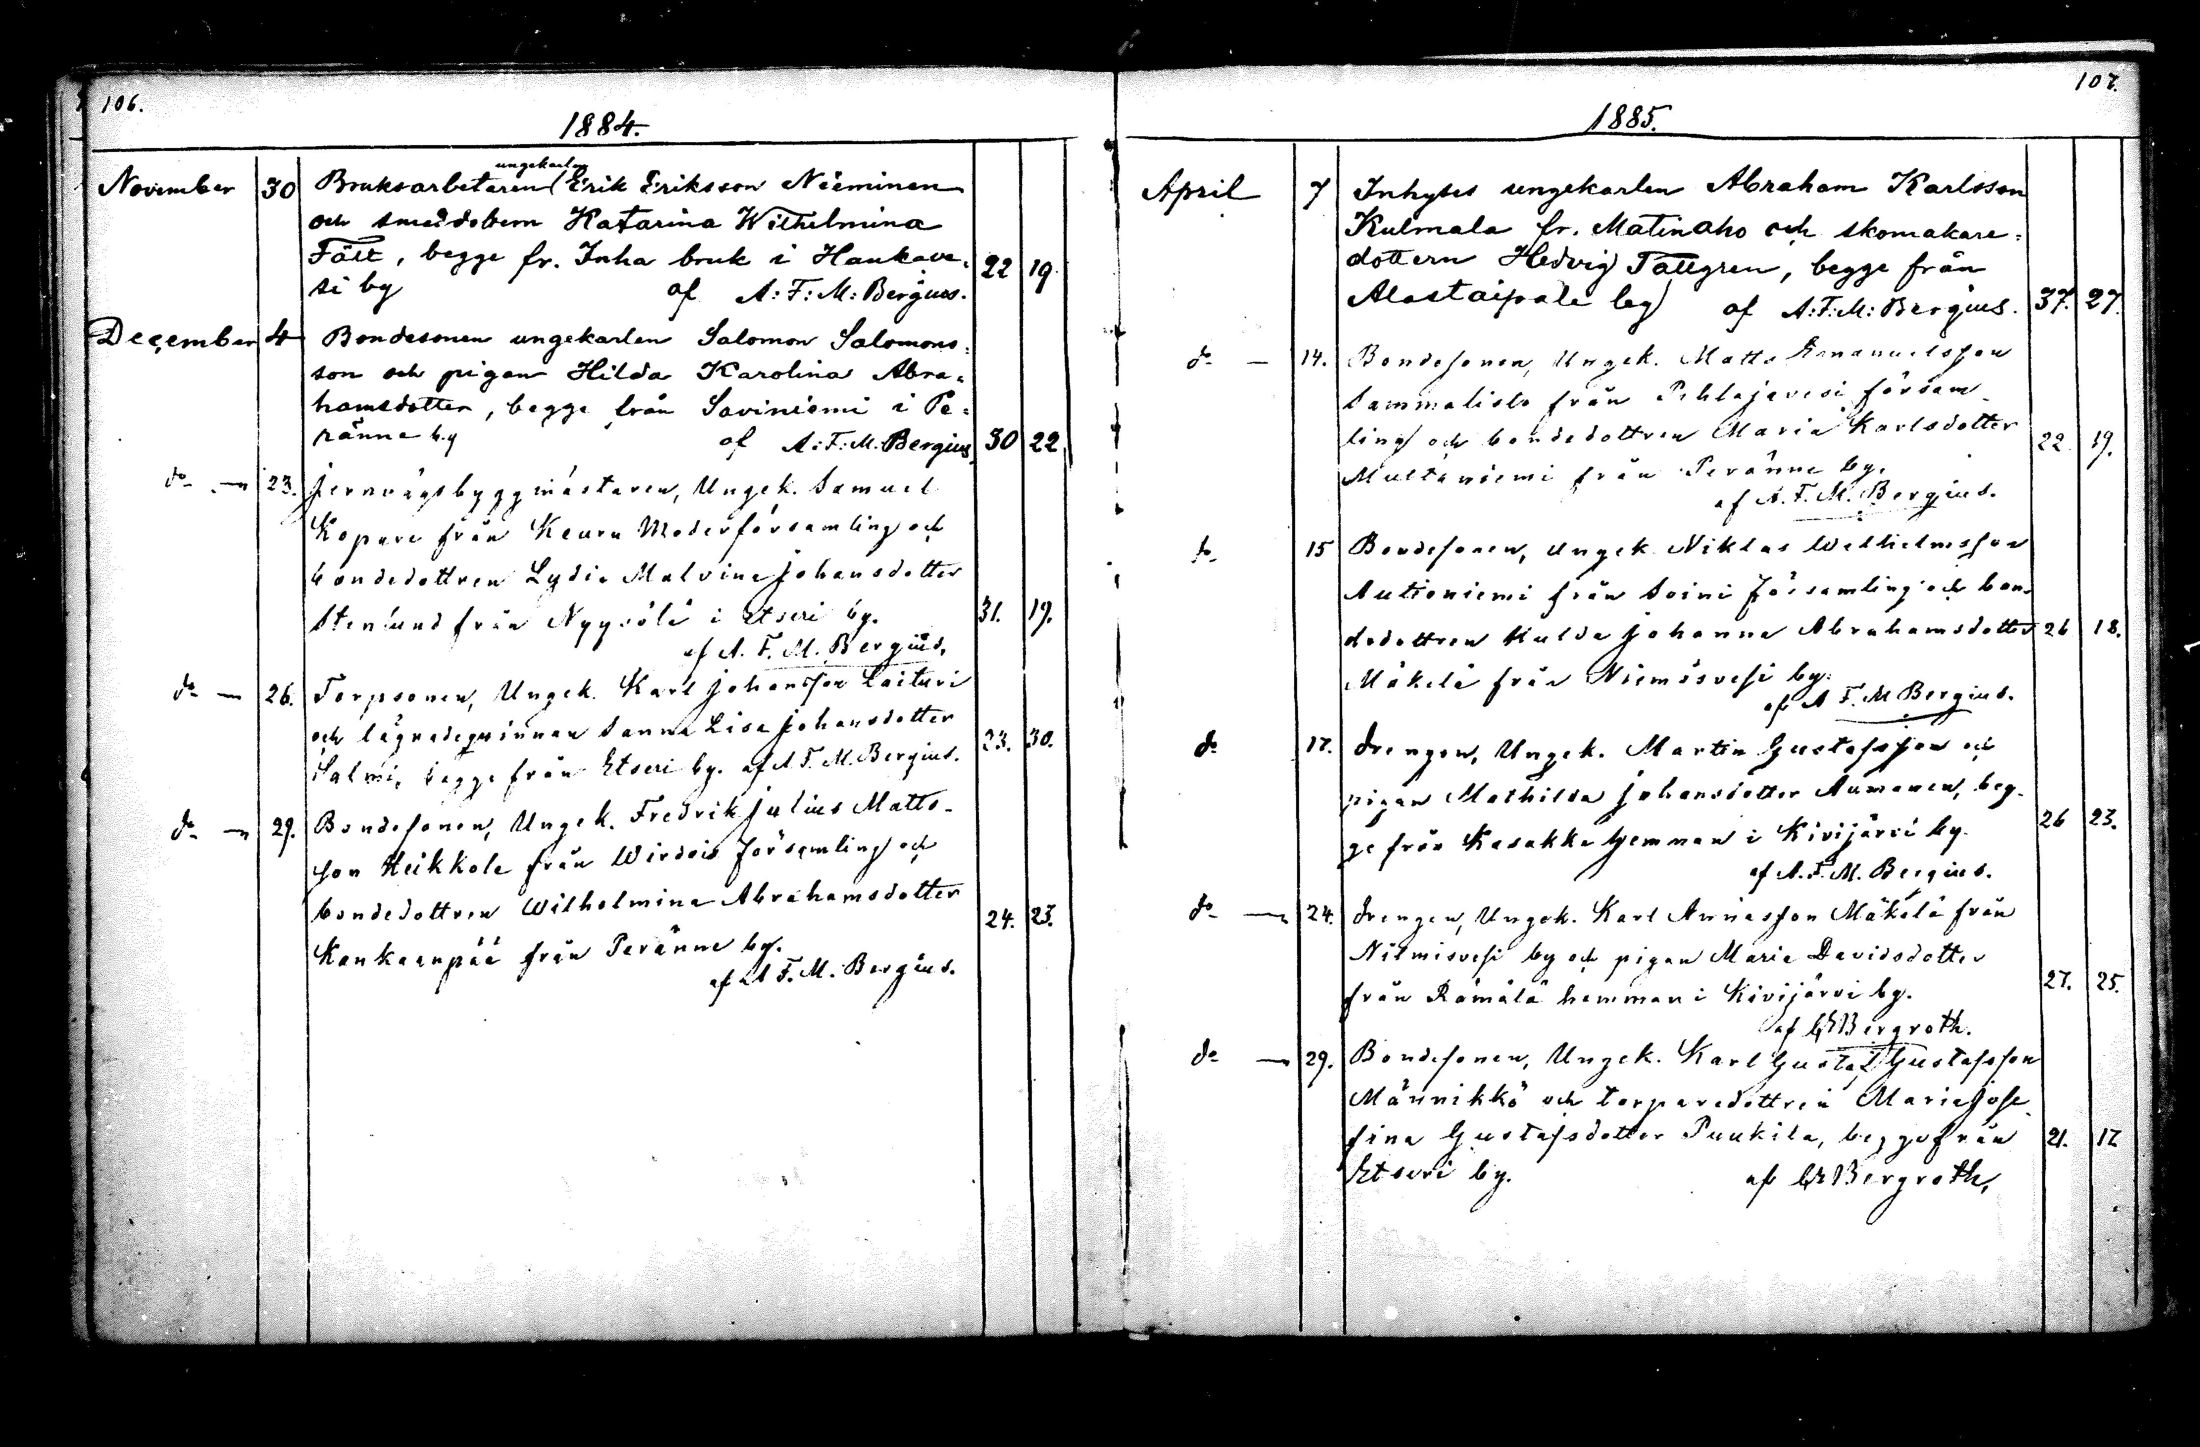 106.
1884.
November 30 Bruksarbetaren (ungekarlen Erik Eriksson Nieminen
och smeddottern Katarina Wilhelmina
Fält, begge fr. Inha bruk i Hankave-
si by af A:F:M: Bergius. 22 19
December 4 Bondesonen ungekarlen Salomon Salomons-
son och pigan Hilda Karolina Abra-
hamsdotter, begge från Saviniemi i Pe-
ränne by af A:F:M. Bergius 30 22
do — 23. Jernvägsbyggmästaren, Ungek. Samuel
Kopare från Keuru Moderförsamling och
bondedottren Lydia Malvina Johansdotter
Stenlund från Nyysölä i Etseri by. 31. 19.
af A. F. M. Bergius.
do — 26. Torpsonen, Ungek. Karl Johansson Laituri
och lägnadeqvinnan Sanna Lisa Johansdotter
Salmi, begge från Etseri by. af A F. M. Bergius. 23. 30.
do — 29. Bondesonen, Ungek. Fredrik Julius Matts-
son Heikkole från Wirdois församling och
bondedottren Wilhelmina Abrahamsdotter
Kankaanpää från Peränne by. 24. 23.
af A F. M. Bergius.
107.
1885.
April 7 Inhyses ungekarlen Abraham Karlsson
Kulmala fr. Matinaho och skomakare-
dottern Hedvig Tallgren, begge från
Alastaipale by af A:F:M: Bergius. 37. 27.
do — 14. Bondesonen, Ungek. Matts Emanuelsson
Sammalisto från Pihlajavesi församl
ling och bondedottren Maria Karlsdotter
Multaniemi från Peränne by. 22 19.
af A. F. M. Bergius.
do 15 Bondesonen, Ungek. Niklas Wilhelmsson
Autioniemi från Soini församling och bon-
dedottren Hulda Johanna Abrahamsdotter 26 18.
Mäkelä från Niemisvesi by.
af A F. M Bergius.
do 17. Drengen, Ungek. Martin Gustafsson och
pigan Mathilda Johansdotter Aumanen, beg-
ge från Kasakka hemman i Kivijärvi by. 26 23.
af A. F. M. Bergius.
do — 24. Drengen, Ungek. Karl Annasson Mäkelä från
Niemisvesi by och pigan Maria Davidsdotter
från Rämälä hemman i Kivijärvi by. 27. 25.
af GBergroth.
do — 29. Bondesonen, Ungek. Karl Gustaf Gustafsson
Männikkö och torparedottren Maria Jose
fina Gustafsdotter Puukila, begge från 21. 17
Etseri by. af GBergroth,